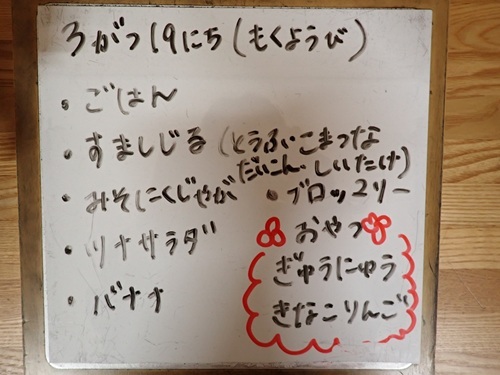 3がつ19にち(もくようび)
・ごはん
・すましじる(とうふ・こまつな
だいこん・しいたけ)
・みそにくじゃが
・ブロッコリー
・ツナサラダ
・バナナ
おやつ
ぎゅうにゅう
きなこりんご